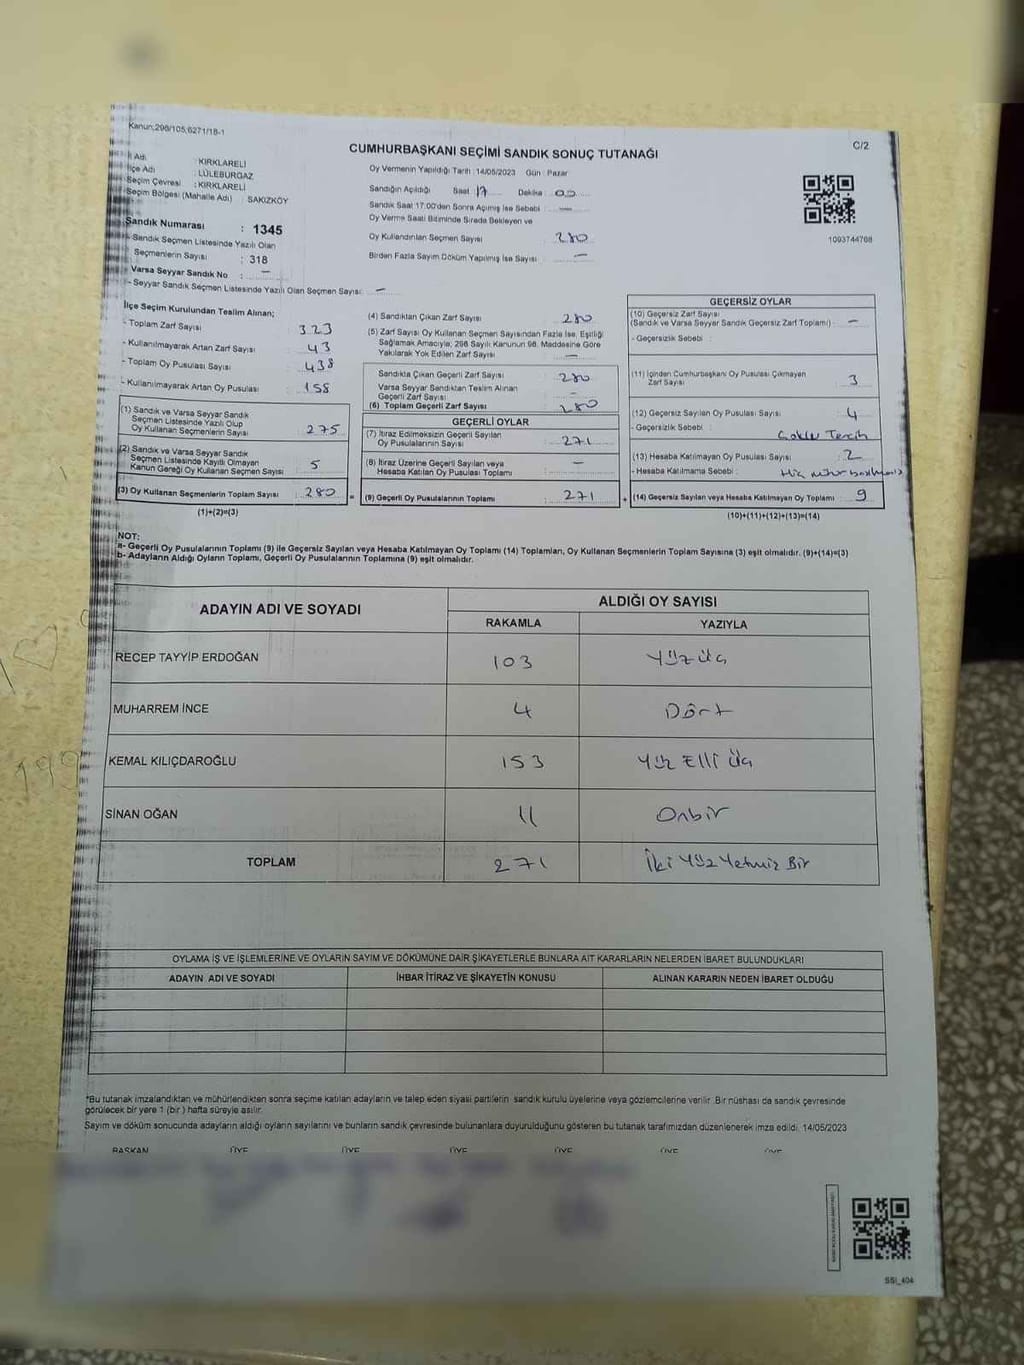 Kanun:298/105,6271/18-1
C/2
CUMHURBAŞKANI SEÇİMİ SANDIK SONUÇ TUTANAĞI
İl Adı : KIRKLARELİ
İlçe Adı : LÜLEBURGAZ
Seçim Çevresi : KIRKLARELİ
Seçim Bölgesi (Mahalle Adı) SAKIZKÖY
Sandık Numarası : 1345
Sandık Seçmen Listesinde Yazılı Olan
Seçmenlerin Sayısı : 318
Varsa Seyyar Sandık No : –
- Seyyar Sandık Seçmen Listesinde Yazılı Olan Seçmen Sayısı: –
Oy Vermenin Yapıldığı Tarih :14/05/2023 Gün : Pazar
Sandığın Açıldığı Saat : 17 Dakika : 00
Sandık Saat 17.00'den Sonra Açımış İse Sebebi : —
Oy Verme Saati Bitiminde Sırada Bekleyen ve
Oy Kullandırılan Seçmen Sayısı : 280
Birden Fazla Sayım Döküm Yapılmış İse Sayısı : —
1093744768
İlçe Seçim Kurulundan Teslim Alınan;
- Toplam Zarf Sayısı : 323
- Kullanılmayarak Artan Zarf Sayısı : 43
- Toplam Oy Pusulası Sayısı : 438
- Kullanılmayarak Artan Oy Pusulası : 158
(1) Sandık ve Varsa Seyyar Sandık
Seçmen Listesinde Yazılı Olup
Oy Kullanan Seçmenlerin Sayısı : 275
(2) Sandık ve Varsa Seyyar Sandık
Seçmen Listesinde Kayıtlı Olmayan
Kanun Gereği Oy Kullanan Seçmen Sayısı : 5
(3) Oy Kullanan Seçmenlerin Toplam Sayısı : 280
(1)+(2)=(3)
(4) Sandıktan Çıkan Zarf Sayısı : 280
(5) Zarf Sayısı Oy Kullanan Seçmen Sayısından Fazla İse, Eşitliği
Sağlamak Amacıyla; 298 Sayılı Kanunun 98. Maddesine Göre
Yakılarak Yok Edilen Zarf Sayısı : —
Sandıkta Çıkan Geçerli Zarf Sayısı : 280
Varsa Seyyar Sandıktan Teslim Alınan
Geçerli Zarf Sayısı : –
(6) Toplam Geçerli Zarf Sayısı : 280
GEÇERLİ OYLAR
(7) İtiraz Edilmeksizin Geçerli Sayılan
Oy Pusulalarının Sayısı : 271
(8) İtiraz Üzerine Geçerli Sayılan veya
Hesaba Katılan Oy Pusulası Toplamı : —
(9) Geçerli Oy Pusulalarının Toplamı : 271
GEÇERSİZ OYLAR
(10) Geçersiz Zarf Sayısı
(Sandık ve Varsa Seyyar Sandık Geçersiz Zarf Toplamı) : –
- Geçersizlik Sebebi :
(11) İçinden Cumhurbaşkanı Oy Pusulası Çıkmayan
Zarf Sayısı : 3
(12) Geçersiz Sayılan Oy Pusulası Sayısı : 4
- Geçersizlik Sebebi : Çoklu Tercih
(13) Hesaba Katılmayan Oy Pusulası Sayısı : 2
- Hesaba Katılmama Sebebi : Hiç mühür
(14) Geçersiz Sayılan veya Hesaba Katılmayan Oy Toplamı : 9
(10)+(11)+(12)+(13)=(14)
NOT:
a- Geçerli Oy Pusulalarının Toplamı (9) ile Geçersiz Sayılan veya Hesaba Katılmayan Oy Toplamı (14) Toplamları, Oy Kullanan Seçmenlerin Toplam Sayısına (3) eşit olmalıdır. (9)+(14)=(3)
b- Adayların Aldığı Oyların Toplamı, Geçerli Oy Pusulalarının Toplamına (9) eşit olmalıdır.
ADAYIN ADI VE SOYADI
ALDIĞI OY SAYISI
RAKAMLA YAZIYLA
RECEP TAYYİP ERDOĞAN 103 Yüz üç
MUHARREM İNCE 4 Dört
KEMAL KILIÇDAROĞLU 153 Yüz Elli Üç
SİNAN OĞAN 11 Onbir
TOPLAM 271 İki Yüz Yetmiş Bir
OYLAMA İŞ VE İŞLEMLERİNE VE OYLARIN SAYIM VE DÖKÜMÜNE DAİR ŞİKAYETLERLE BUNLARA AİT KARARLARIN NELERDEN İBARET BULUNDUKLARI
ADAYIN ADI VE SOYADI İHBAR İTİRAZ VE ŞİKAYETİN KONUSU ALINAN KARARIN NEDEN İBARET OLDUĞU
*Bu tutanak imzalandıktan ve mühürlendikten sonra seçime katılan adayların ve talep eden siyasi partilerin sandık kurulu üyelerine veya gözlemcilerine verilir. Bir nüshası da sandık çevresinde
görülecek bir yere 1 (bir) hafta süreyle asılır.
Sayım ve döküm sonucunda adayların aldığı oyların sayılarını ve bunların sandık çevresinde bulunanlara duyurulduğunu gösteren bu tutanak tarafımızdan düzenlenerek imza edildi. 14/05/2023
BAŞKAN ÜYE ÜYE ÜYE ÜYE ÜYE ÜYE
SSİ_404